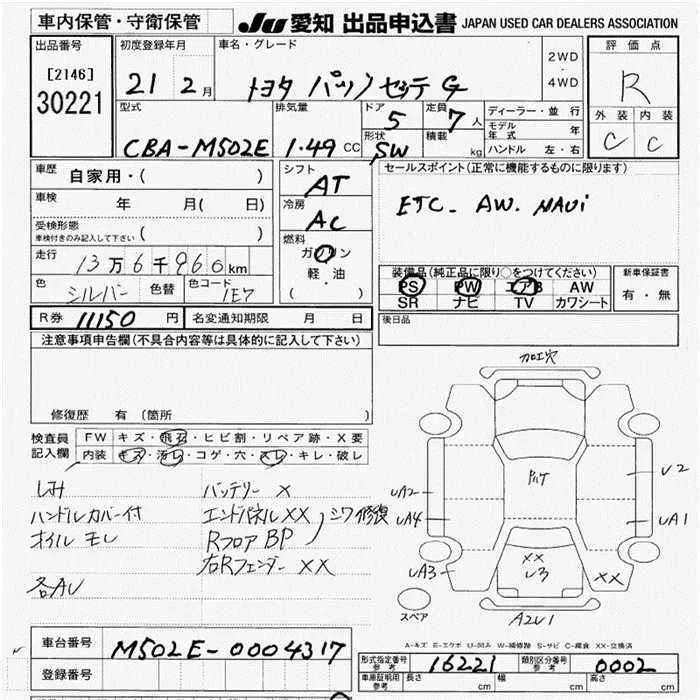 車内保管・守衛保管
JU 愛知 出品申込書 JAPAN USED CAR DEALERS ASSOCIATION
出品番号
[2146]
30221
初度登録年月
21 2月
車名・グレード
トヨタ パッソセッテ G
2WD
・
4WD
評価点
R
外装 内装
C C
型式
CBA-M502E
排気量
1.49 CC
ドア
5
形状
SW
定員
7人
積載
kg
ディーラー・並行
モデル年式 年
ハンドル 左・右
車歴
自家用・( )
車検
年 月( 日)
受検形態
車検付きのみ記入して下さい ( )
走行
13万6千960km
色
シルバー 色替
色コード
1E7
シフト
AT
冷房
AC
燃料
ガソリン
軽・油
( )
セールスポイント(正常に機能するものに限ります)
ETC. AW. NAVi
装備品(純正品に限り○をつけてください)
PS PW エアB AW
SR ナビ TV カワシート
新車保証書
有・無
R券 11150 円
名変通知期限 月 日
後日品
注意事項申告欄(不具合内容等は具体的に記入して下さい)
修復歴 有(箇所 )
検査員記入欄
FW キズ・飛石・ヒビ割・リペア跡・X要
内装 キズ・汚レ・コゲ・穴・スレ・キレ・破レ
しみ
ハンドルカバー付
オイルモレ
各AU
バッテリー ×
エンドパネル XX
RフロアBP
シワ修復
右Rフェンダー XX
加工穴
UA2
UA4
UA3
U2
UA1
XX
U3
XX
A2U1
スペア
A-キズ E-エクボ U-凹み W-補修跡 S-サビ C-腐食 XX-交換済
車台番号
M502E-0004317
登録番号
形式指定番号
参考
16221
類別区分番号
参考
0002
車庫証明用
参考
長さ cm
幅 cm
高さ cm